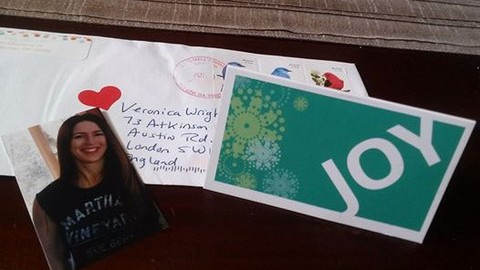 Veronica Wright
73 Atkinson
Austin Rd.
London SW
England
JOY
MARTHA
VINEYAR